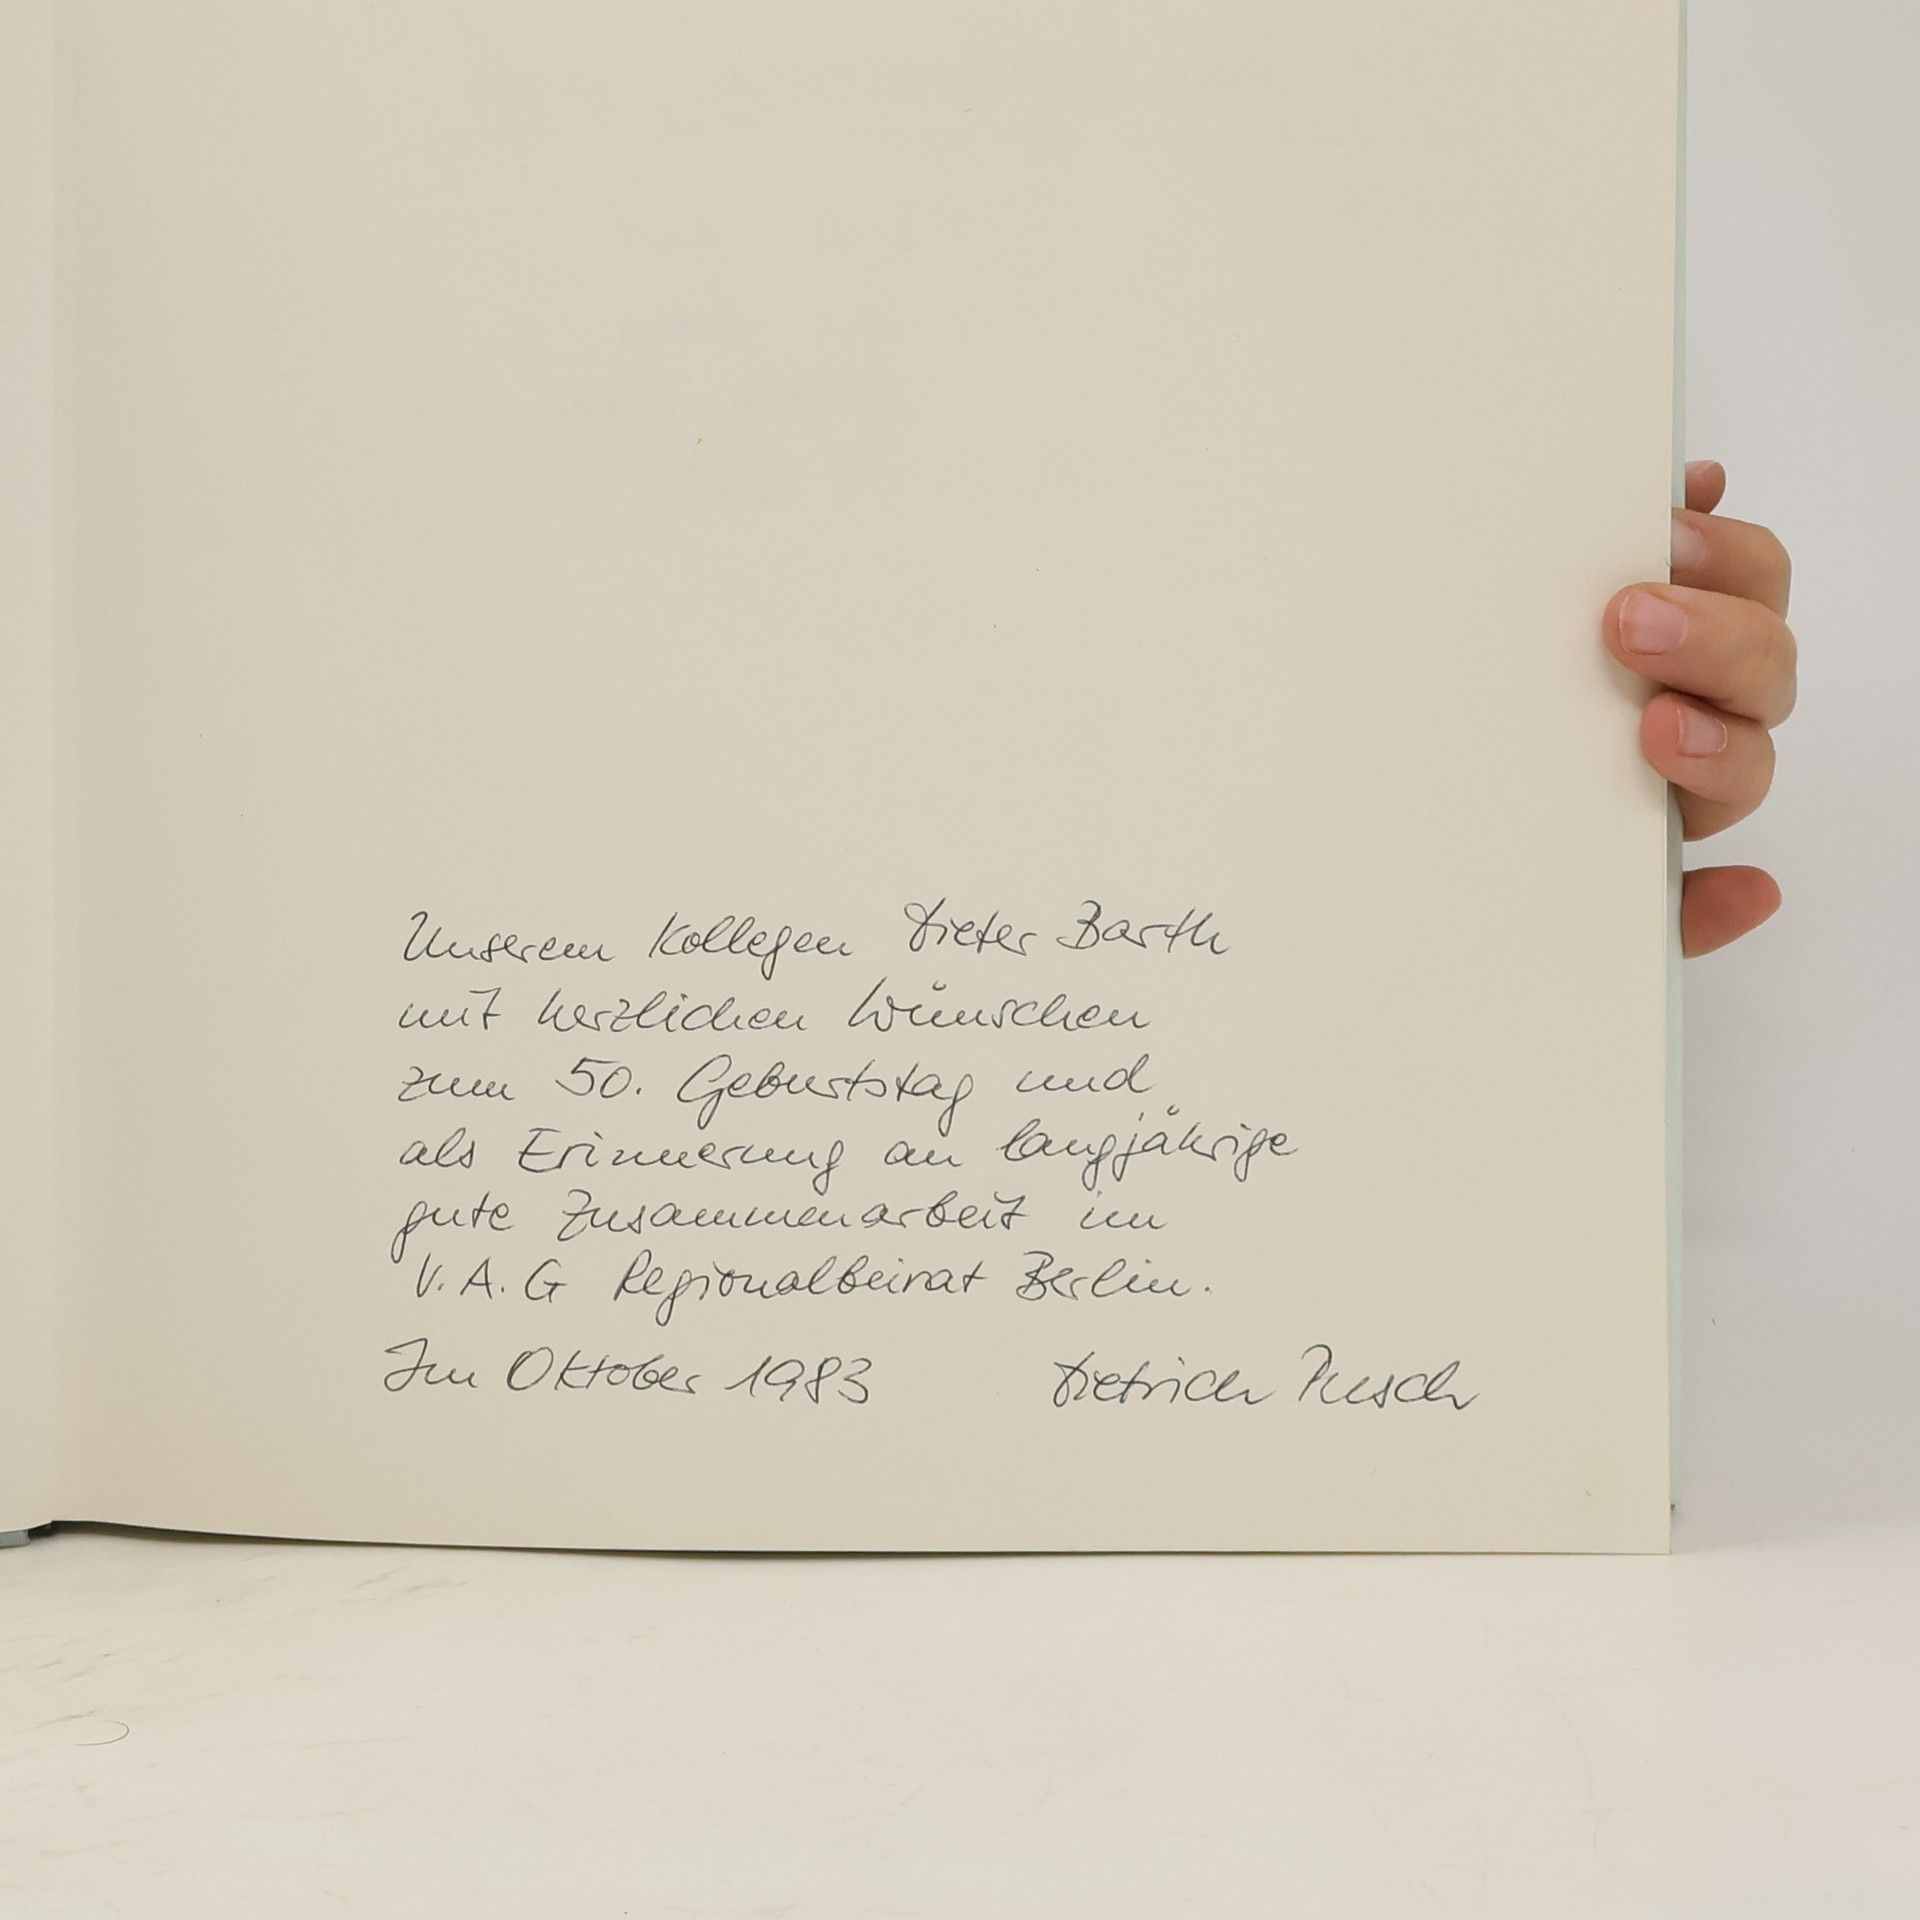 Unserem Kollegen Dieter Barth
mit herzlichen Wünschen
zum 50. Geburtstag und
als Erinnerung an langjährige
gute Zusammenarbeit im
V.A.G Regionalbeirat Berlin.
Im Oktober 1983 Dietrich Pusch